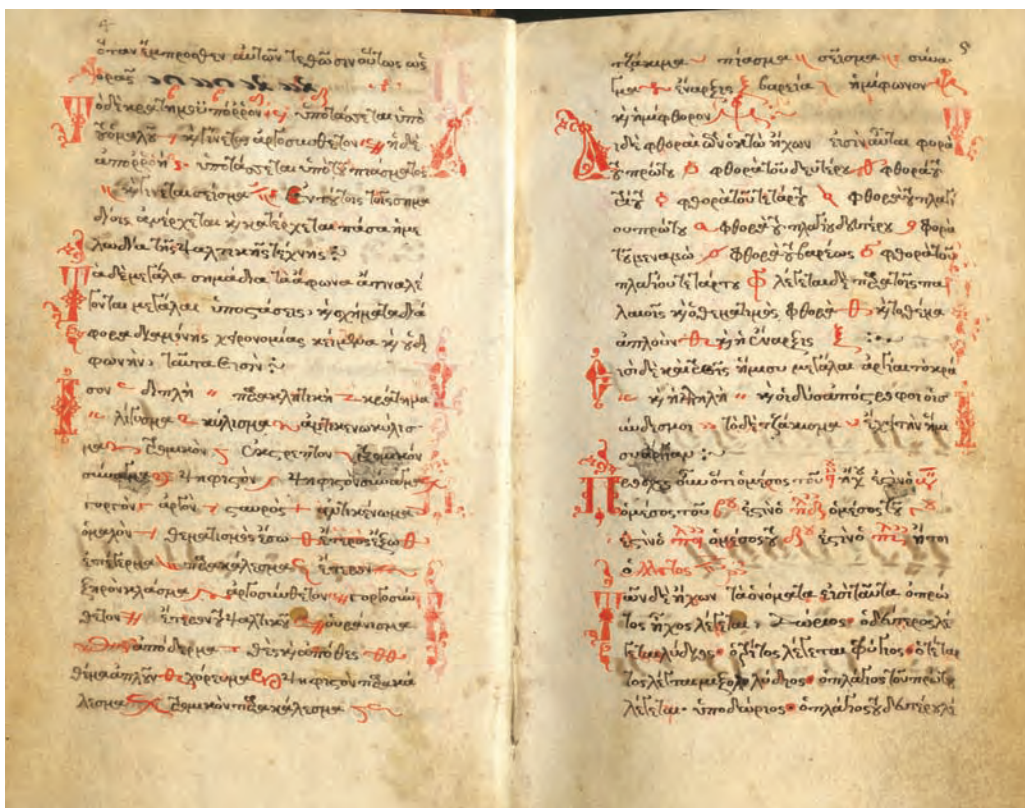 ὅταν ἔμπροσθεν αὐτῶν τεθῶσιν οὕτως ὡς
ὁρᾷς
Τὸ δὲ κράτημοϋπόρροον ὑποτάσσεται ὑπὸ
τοῦ ὁμαλοῦ καὶ γίνεται ἀργοσύνθετον ἡ δὲ
ἀπορροὴ ὑποτάσσεται ὑπὸ τοῦ πιάσματος
καὶ γίνεται σεῖσμα Ἐν τούτοις τοῖς σημα
δίοις ἀνέρχεται καὶ κατέρχεται πᾶσα ἡ με
λωδία τῆς ψαλτικῆς τέχνης
Τὰ δὲ μεγάλα σημάδια τὰ ἄφωνα ἅτινα λέ
γονται μεγάλαι ὑποστάσεις καὶ σχήματα διά
φορα διὰ μόνης χειρονομίας κείμενα καὶ οὐ διὰ
φωνὴν ταῦτα εἰσὶν
Ἴσον διπλῆ παρακλητικὴ κράτημα
λύγισμα κύλισμα ἀντικενωκύλισ
μα τρομικὸν ἐκστρεπτὸν τρομικὸν
σύναγμα ψηφιστὸν ψηφιστὸν σύναγμα
γοργὸν ἀργὸν σταυρὸς ἀντικένωμα
ὁμαλὸν θεματισμὸς ἔσω ἕτερος ἔξω
ἐπέγερμα παρακάλεσμα ἕτερον
ξηρὸν κλάσμα ἀργοσύνθετον γοργοσύν
θετον ἕτερον τοῦ ψαλτικοῦ οὐράνισμα
ἀπόδερμα θὲς καὶ ἀπόθες
θέμα ἁπλοῦν χόρευμα ψηφιστὸν παρακά
λεσμα τρομικὸν παρακάλεσμα
τζάκισμα πίασμα σεῖσμα σύνα
γμα ἔναρξις βαρεία ἡμίφωνον
καὶ ἡμίφθορον
Αἱ δὲ φθοραὶ τῶν ὀκτὼ ἤχων εἰσὶν αὗται φορὰ
τοῦ πρώτου φθορὰ τοῦ δευτέρου φθορὰ τοῦ
τρίτου φθορὰ τοῦ τετάρτου φθορὰ τοῦ πλαγί
ου πρώτου φθορὰ τοῦ πλαγίου δευτέρου φορὰ
τοῦ νενανὼ φθορὰ τοῦ βαρέως φθορὰ τοῦ
πλαγίου τετάρτου λέγεται δὲ παρὰ τοῖς πα
λαιοῖς καὶ ὁ θεματισμὸς φθορὰ καὶ τὸ θέμα
ἁπλοῦν καὶ ἡ ἔναρξις
Εἰσὶ δὲ καὶ ἥμισυ μεγάλαι ἀργίαι τὸ κρά
καὶ ἡ διπλῆ καὶ οἱ δύο ἀπόστροφοι οἱ σ
ύνδεσμοι τὸ δὲ τζάκισμα ἔχει τὴν ἡμί
συ ἀργίαν
Πρόσχες οὖν ὅτι ὁ μέσος τοῦ ἤχου ἐστιν ὁ
ὁ μέσος τοῦ ἐστιν ὁ ὁ μέσος τοῦ
ἐστιν ὁ ὁ μέσος τοῦ ἐστιν ὁ ἤτοι
ὁ
Τῶν δὲ ἤχων τὰ ὀνόματα εἰσὶ ταῦτα ὁ πρῶ
τος ἦχος λέγεται δώριος ὁ δεύτερος λέ
γεται λύδιος ὁ τρίτος λέγεται φρύγιος ὁ τέταρ
τος λέγεται μιξολύδιος ὁ πλάγιος τοῦ πρώτου
λέγεται ὑποδώριος ὁ πλάγιος τοῦ δευτέρου λέ